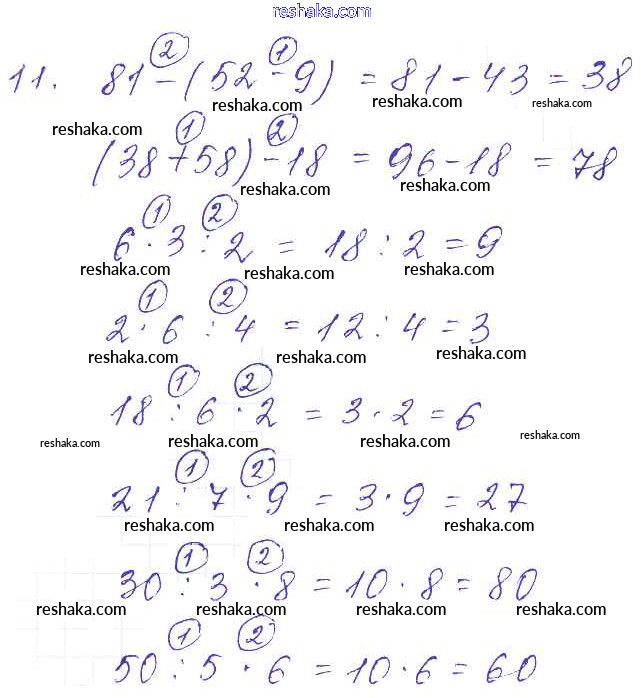 reshaka.com
11. 81 - (52 - 9) = 81 - 43 = 38
② ①
reshaka.com reshaka.com reshaka.com reshaka.com
(38 + 58) - 18 = 96 - 18 = 78
① ②
reshaka.com reshaka.com reshaka.com
6 · 3 : 2 = 18 : 2 = 9
① ②
reshaka.com reshaka.com reshaka.com
2 · 6 : 4 = 12 : 4 = 3
① ②
reshaka.com reshaka.com reshaka.com
18 : 6 · 2 = 3 · 2 = 6
① ②
reshaka.com reshaka.com reshaka.com reshaka.com
21 : 7 · 9 = 3 · 9 = 27
① ②
reshaka.com reshaka.com reshaka.com
30 : 3 · 8 = 10 · 8 = 80
① ②
reshaka.com reshaka.com reshaka.com reshaka.com
50 : 5 · 6 = 10 · 6 = 60
① ②